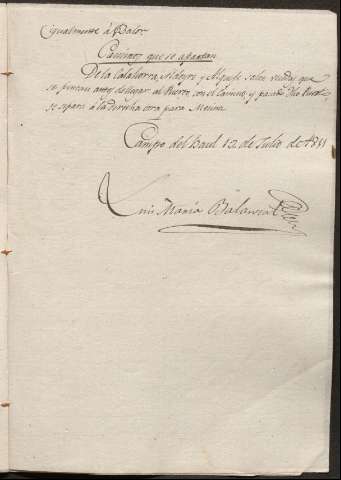 igualmente á Baloz.
Caminos que se apartan
De la Calahorra, Aldeyre y Alquife salen veredas que
se juntan antes de llegar al Puerto, con el Camino, y pasado dho Puerto,
se separa á la derecha otra para Mecina.
Campo del Baul 12 de Julio de 1811
Luis María Balanzat